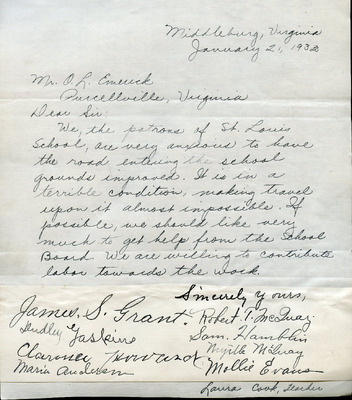 Middleburg, Virginia
January 21, 1932
Mr. O. L. Emerick
Purcellville, Virginia
Dear Sir:
We, the patrons of St. Louis
School, are very anxious to have
the road entering the school
grounds improved. It is in a
terrible condition, making travel
upon it almost impossible. If
possible, we should like very
much to get help from the School
Board. We are willing to contribute
labor towards the work.
Sincerely yours,
James. S. Grant.
Robert T. McQuay
Dudley Gaskins
Sam. Hamblin
Clarence
Myrtle McQuay
Maria Anderson
Mollie Evans
Laura Cook, Teacher